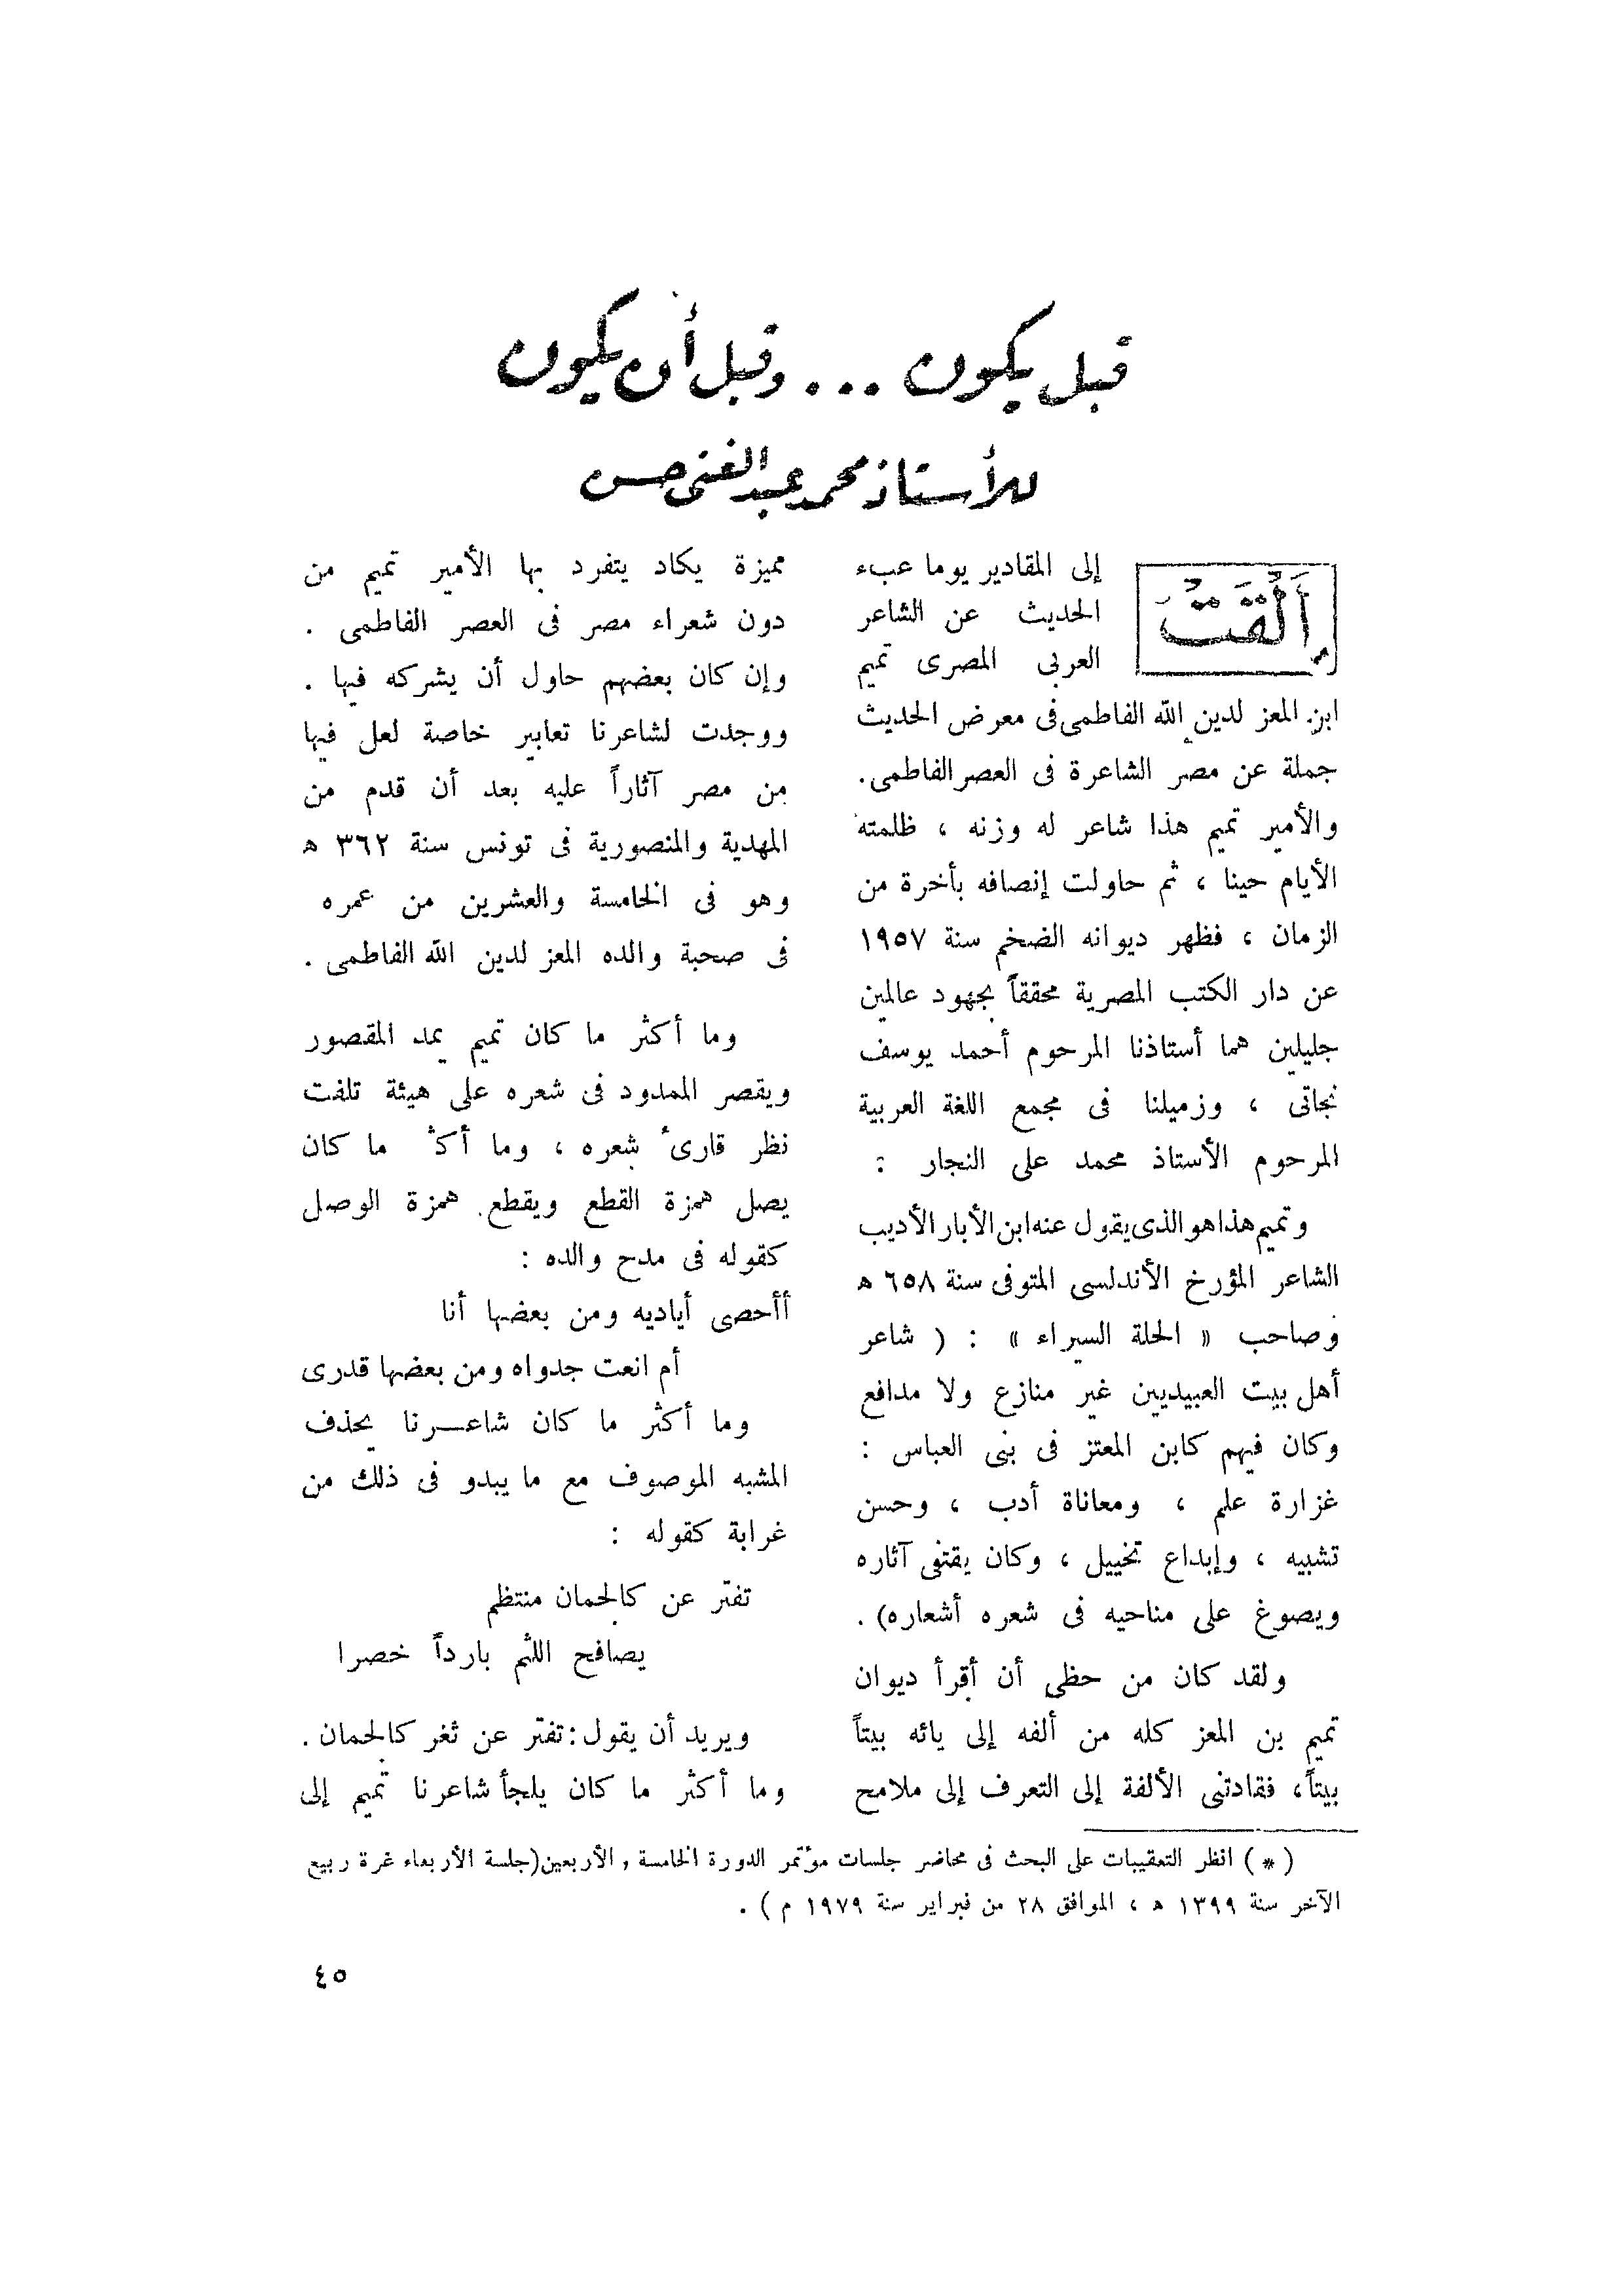 قبل يكون ... وقبل أن يكون
للأستاذ محمد عبد الغنى حسن
أَلْقَتْ إلى المقادير يوما عبء
الحديث عن الشاعر
العربى المصرى تميم
ابن المعز لدين الله الفاطمى فى معرض الحديث
جملة عن مصر الشاعرة فى العصر الفاطمى.
والأمير تميم هذا شاعر له وزنه ، ظلمته
الأيام حينا ، ثم حاولت إنصافه بأخرة من
الزمان ، فظهر ديوانه الضخم سنة ١٩٥٧
عن دار الكتب المصرية محققاً بجهود عالمين
جليلين هما أستاذنا المرحوم أحمد يوسف
نجاتى ، وزميلنا فى مجمع اللغة العربية
المرحوم الأستاذ محمد على النجار :
وتميم هذا هو الذى يقول عنه ابن الأبار الأديب
الشاعر المؤرخ الأندلسى المتوفى سنة ٦٥٨ ه
وصاحب « الحلة السيراء » : ( شاعر
أهل بيت العبيديين غير منازع ولا مدافع
وكان فيهم كابن المعتز فى بنى العباس :
غزارة علم ، ومعاناة أدب ، وحسن
تشبيه ، وإبداع تخييل ، وكان يقتفى آثاره
ويصوغ على مناحيه فى شعره أشعاره) .
ولقد كان من حظى أن أقرأ ديوان
تميم بن المعز كله من ألفه إلى يائه بيتاً
بيتاً، فقادتنى الألفة إلى التعرف إلى ملامح
مميزة يكاد يتفرد بها الأمير تميم من
دون شعراء مصر فى العصر الفاطمى .
وإن كان بعضهم حاول أن يشركه فيها .
ووجدت لشاعرنا تعابير خاصة لعل فيها
من مصر آثاراً عليه بعد أن قدم من
المهدية والمنصورية فى تونس سنة ٣٦٢ ه
وهو فى الخامسة والعشرين من عمره
فى صحبة والده المعز لدين الله الفاطمى .
وما أكثر ما كان تميم يمد المقصور
ويقصر الممدود فى شعره على هيئة تلفت
نظر قارئ شعره ، وما أكثر ما كان
يصل همزة القطع ويقطع همزة الوصل
كقوله فى مدح والده :
أأحصى أياديه ومن بعضها أنا
أم انعت جدواه ومن بعضها قدرى
وما أكثر ما كان شاعرنا يحذف
المشبه الموصوف مع ما يبدو فى ذلك من
غرابة كقوله :
تفتّر عن كالجمان منتظم
يصافح اللثم بارداً خصرا
ويريد أن يقول : تفتّر عن ثغر كالجمان .
وما أكثر ما كان يلجأ شاعرنا تميم إلى
( * ) انظر التعقيبات على البحث فى محاضر جلسات مؤتمر الدورة الخامسة والأربعين(جلسة الأربعاء غرة ربيع
الآخر سنة ١٣٩٩ ه ، الموافق ٢٨ من فبراير سنة ١٩٧٩ م ) .
٤٥